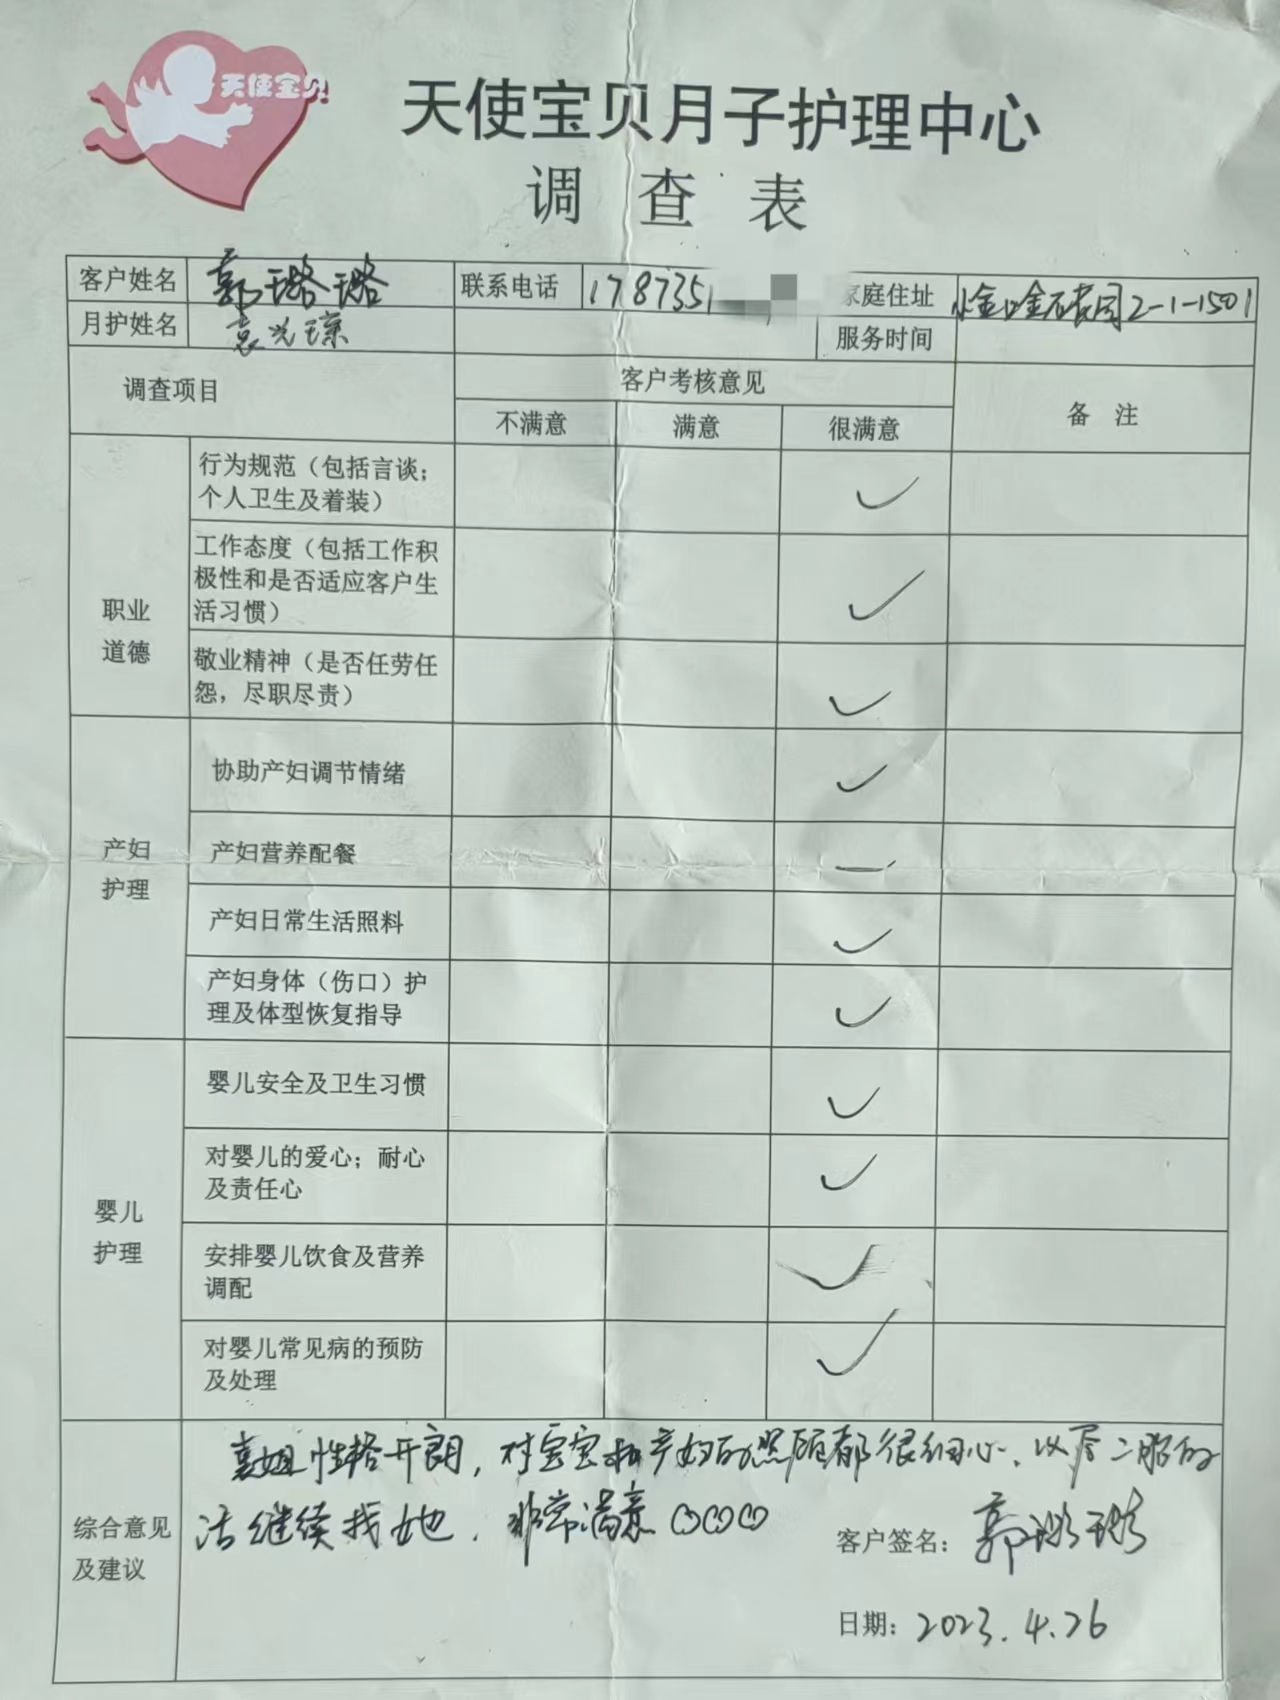 天使宝贝
天使宝贝月子护理中心
调查表
客户姓名 郭璐璐 联系电话 1787351 家庭住址 金石花园2-1-1501
月护姓名 袁兴琼 服务时间
调查项目 客户考核意见 备注
不满意 满意 很满意
职业道德
行为规范（包括言谈；
个人卫生及着装） ✓
工作态度（包括工作积
极性和是否适应客户生
活习惯） ✓
敬业精神（是否任劳任
怨，尽职尽责） ✓
产妇护理
协助产妇调节情绪 ✓
产妇营养配餐
产妇日常生活照料 ✓
产妇身体（伤口）护
理及体型恢复指导 ✓
婴儿护理
婴儿安全及卫生习惯 ✓
对婴儿的爱心；耐心
及责任心 ✓
安排婴儿饮食及营养
调配 ✓
对婴儿常见病的预防
及处理 ✓
综合意见及建议
袁姐性格开朗，对宝宝和产妇的照顾都很细心、以后二胎的
话继续找她．非常满意
客户签名：郭璐璐
日期：2023.4.26